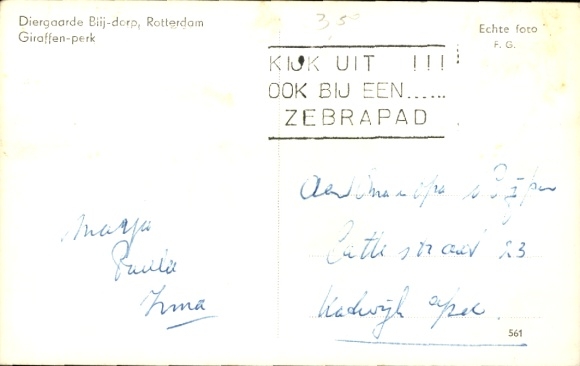 Diergaarde Blij-dorp, Rotterdam
Giraffen-perk
3,50
Echte foto
F. G.
KIJK UIT !!!
OOK BIJ EEN......
ZEBRAPAD
Marja
Paula
Irma
Aan Oma opa
23
Katwijk a/zee
561